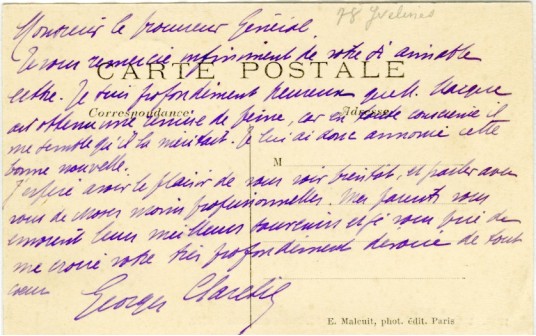 78 Yvelines
Monsieur le procureur Général,
Je vous remercie infiniment de votre si aimable
CARTE POSTALE
lettre. Je suis profondément heureux que M.
Correspondance Adresse
ait obtenu une remise de peine, car en toute conscience il
me semble qu'il la méritait. Je lui ai donc annoncé cette
bonne nouvelle.
M
J'espère avoir le plaisir de vous voir bientôt, et parler avec
vous de choses moins professionnelles. Mes parents vous
envoient leurs meilleurs souvenirs et je vous prie de
me croire votre très profondément dévoué de tout
coeur
Georges Claretie
E. Malcuit, phot. édit. Paris